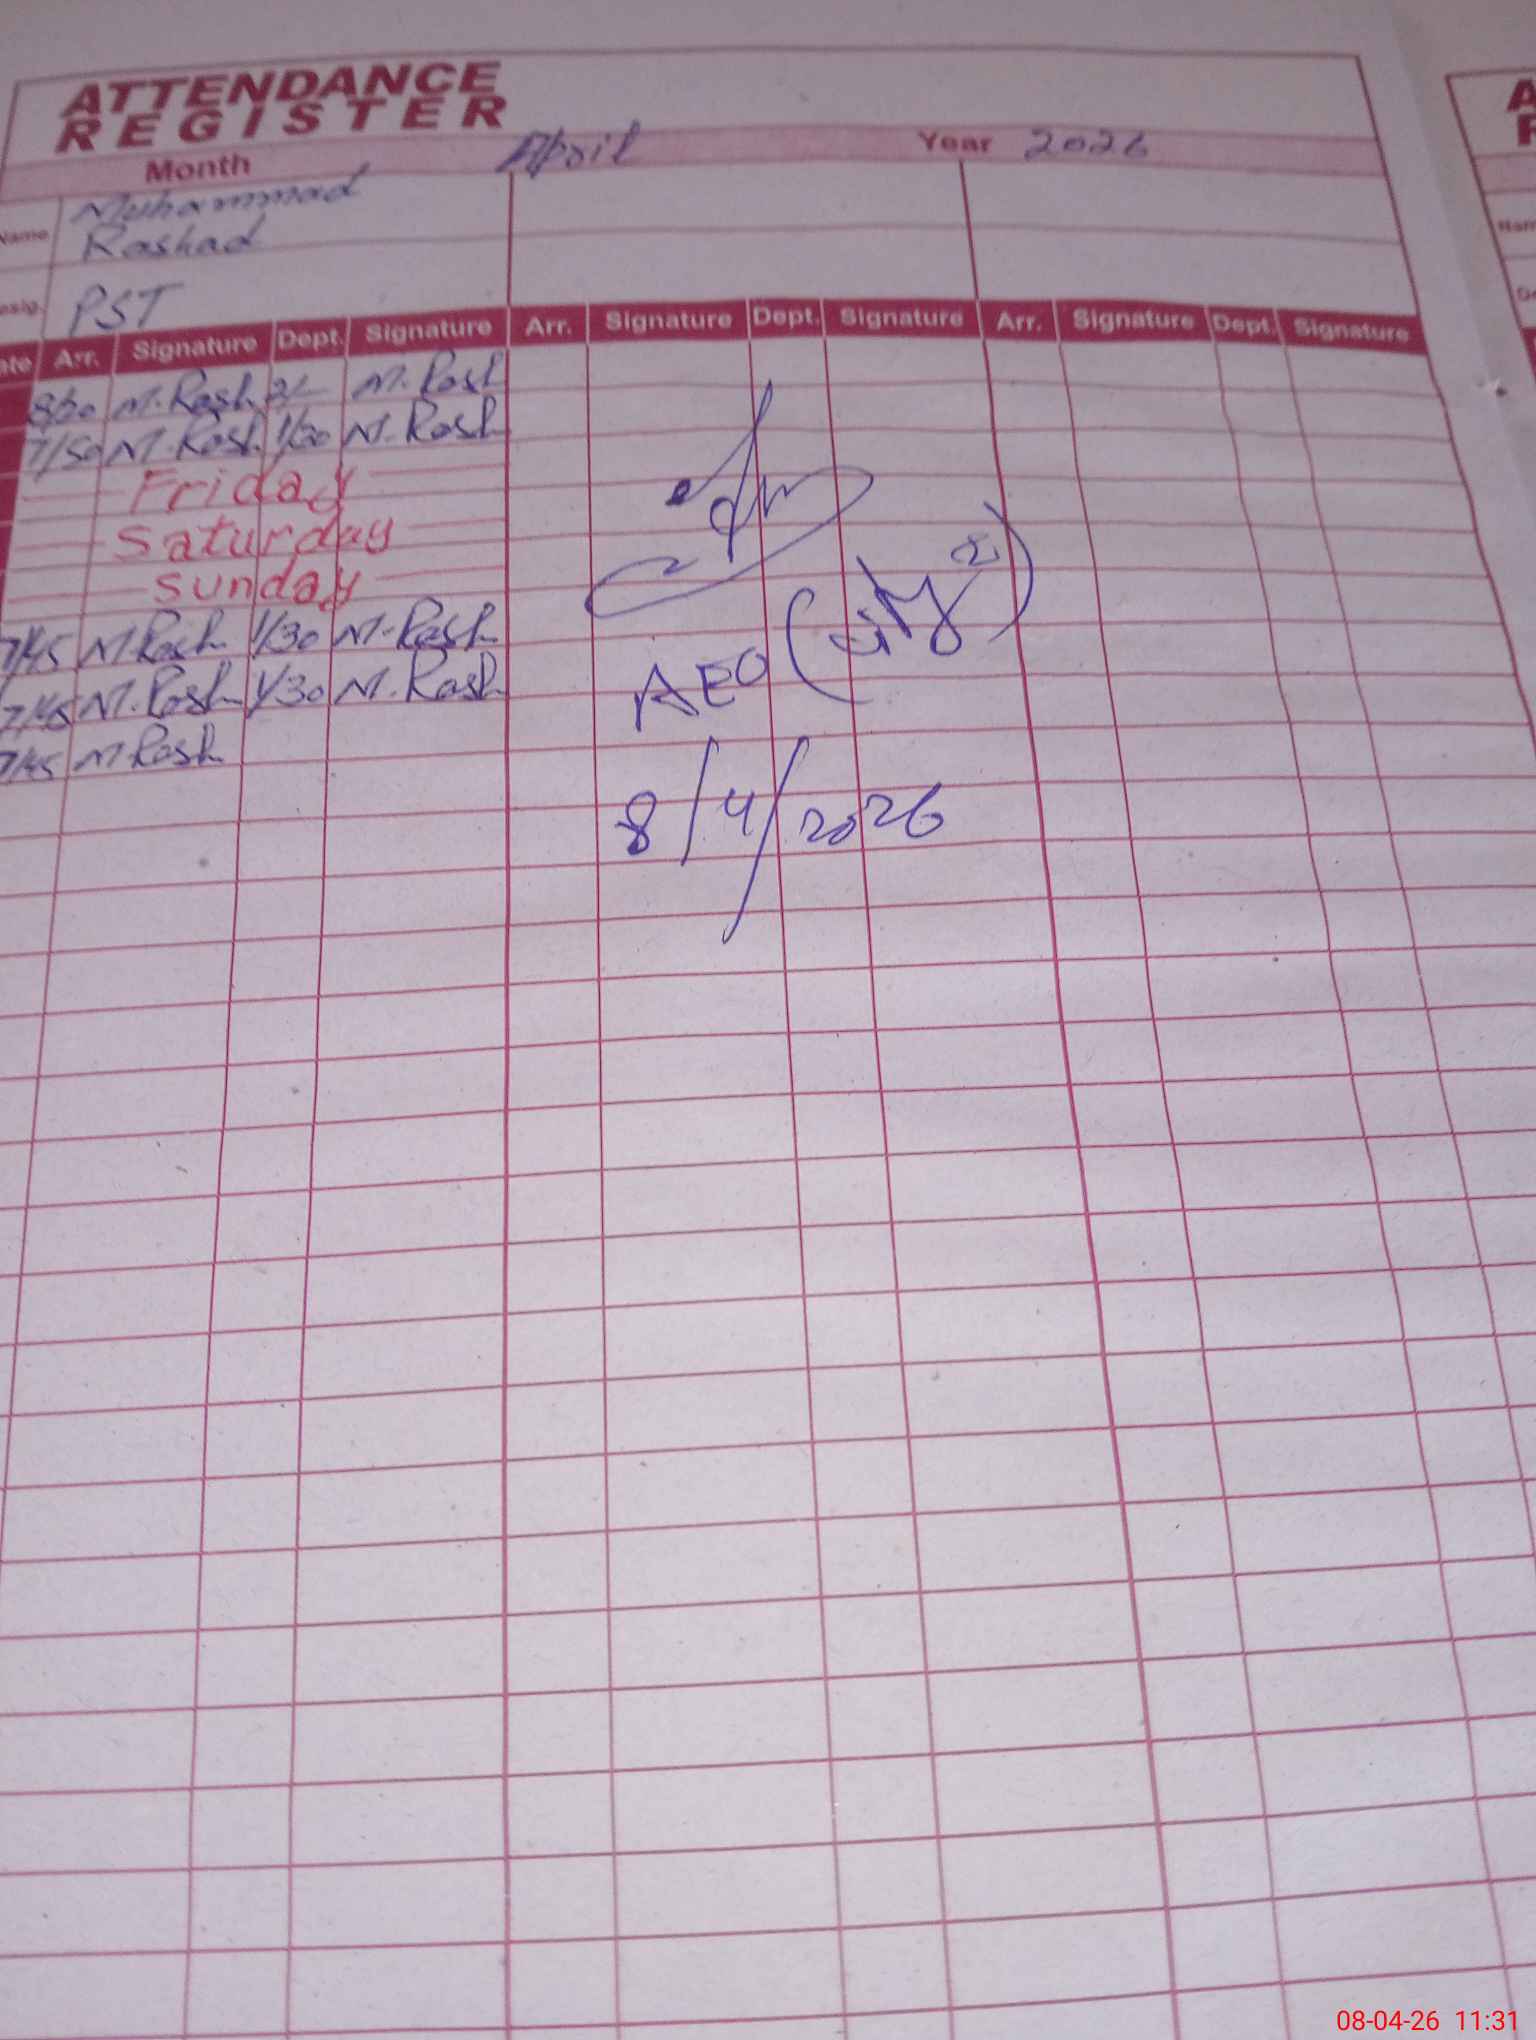 ATTENDANCE
REGISTER
Month April Year 2026
Name Muhammad
Rashad
esig. PST
ate Arr. Signature Dept. Signature Arr. Signature Dept. Signature Arr. Signature Dept. Signature
M. Rash 2/- M. Rash
7/50 M. Rash 1/30 M. Rash
Friday
Saturday
Sunday
7/45 M. Rash 1/30 M. Rash
7/45 M. Rash 1/30 M. Rash
7/45 M. Rash
AEO
8/4/2026
08-04-26 11:31